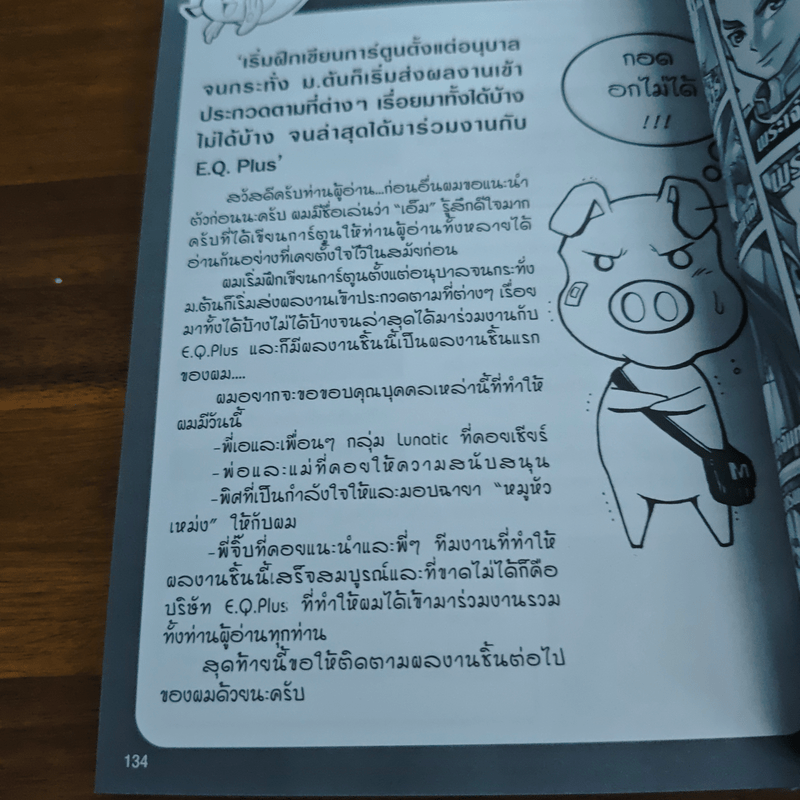 ‘เริ่มฝึกเขียนการ์ตูนตั้งแต่อนุบาล
จนกระทั่ง ม.ต้นก็เริ่มส่งผลงานเข้า
ประกวดตามที่ต่างๆ เรื่อยมาทั้งได้บ้าง
ไม่ได้บ้าง จนล่าสุดได้มาร่วมงานกับ
E.Q. Plus’
สวัสดีครับท่านผู้อ่าน...ก่อนอื่นผมขอแนะนำ
ตัวก่อนนะครับ ผมมีชื่อเล่นว่า “เอ็ม” รู้สึกดีใจมาก
ครับที่ได้เขียนการ์ตูนให้ท่านผู้อ่านทั้งหลายได้
อ่านกันอย่างที่เคยตั้งใจไว้ในสมัยก่อน
ผมเริ่มฝึกเขียนการ์ตูนตั้งแต่อนุบาลจนกระทั่ง
ม.ต้นก็เริ่มส่งผลงานเข้าประกวดตามที่ต่างๆ เรื่อย
มาทั้งได้บ้างไม่ได้บ้างจนล่าสุดได้มาร่วมงานกับ
E.Q.Plus และก็มีผลงานชิ้นนี้เป็นผลงานชิ้นแรก
ของผม....
ผมอยากจะขอขอบคุณบุคคลเหล่านี้ที่ทำให้
ผมมีวันนี้
-พี่เอและเพื่อนๆ กลุ่ม Lunatic ที่คอยเชียร์
-พ่อและแม่ที่คอยให้ความสนับสนุน
-พิศที่เป็นกำลังใจให้และมอบฉายา “หมูหัว
เหม่ง” ให้กับผม
-พี่จิ๊บที่คอยแนะนำและพี่ๆ ทีมงานที่ทำให้
ผลงานชิ้นนี้เสร็จสมบูรณ์และที่ขาดไม่ได้ก็คือ
บริษัท E.Q.Plus ที่ทำให้ผมได้เข้ามาร่วมงานรวม
ทั้งท่านผู้อ่านทุกท่าน
สุดท้ายนี้ขอให้ติดตามผลงานชิ้นต่อไป
ของผมด้วยนะครับ
กอด
อกไม่ได้
!!!
M
134